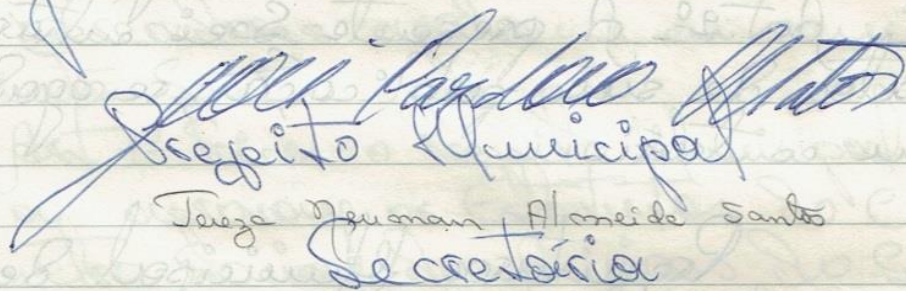 Cardoso Matos
Prefeito Municipal
Tereza Neuman Almeida Santos
Secretária